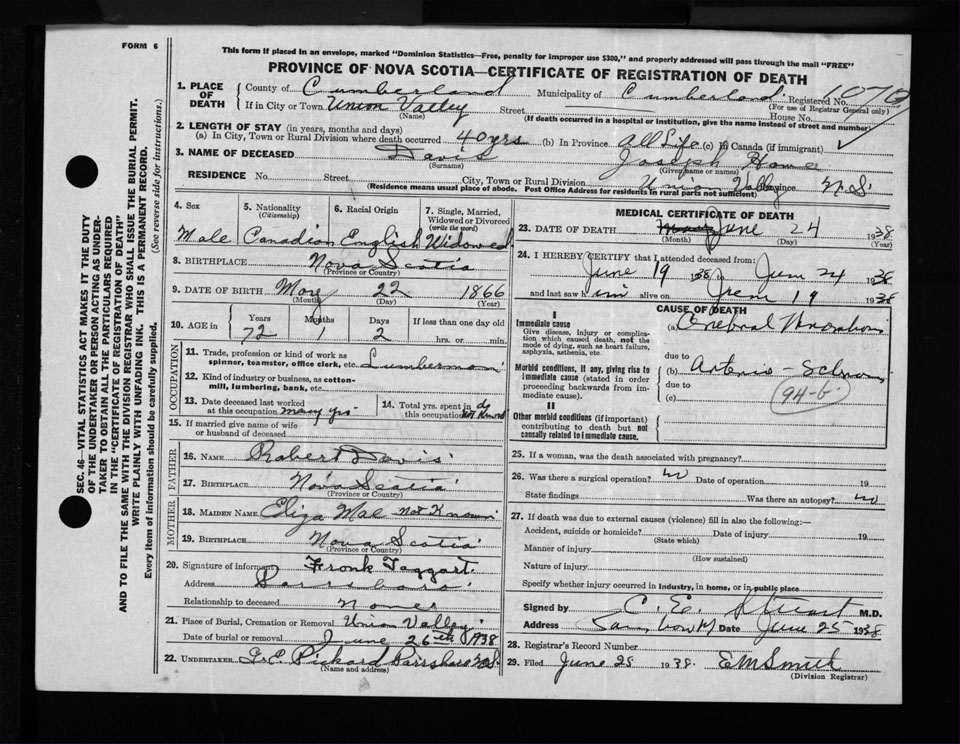 FORM 6
This form if placed in an envelope, marked "Dominion Statistics—Free, penalty for improper use $300," and properly addressed will pass through the mail "FREE"
PROVINCE OF NOVA SCOTIA—CERTIFICATE OF REGISTRATION OF DEATH
SEC. 46—VITAL STATISTICS ACT MAKES IT THE DUTY
OF THE UNDERTAKER OR PERSON ACTING AS UNDER-
TAKER TO OBTAIN ALL THE PARTICULARS REQUIRED
IN THE "CERTIFICATE OF REGISTRATION OF DEATH"
AND TO FILE THE SAME WITH THE DIVISION REGISTRAR WHO SHALL ISSUE THE BURIAL PERMIT.
WRITE PLAINLY WITH UNFADING INK. THIS IS A PERMANENT RECORD.
Every item of information should be carefully supplied. (See reverse side for instructions.)
1. PLACE OF DEATH County of Cumberland Municipality of Cumberland Registered No.
(For use of Registrar General only)
If in City or Town Union Valley Street House No.
(Name) (If death occurred in a hospital or institution, give the name instead of street and number)
2. LENGTH OF STAY (in years, months and days)
(a) In City, Town or Rural Division where death occurred 40 yrs (b) In Province All Life (c) In Canada (if immigrant)
3. NAME OF DECEASED Davis Joseph Howe
(Surname) (Given name or names)
RESIDENCE No. Street City, Town or Rural Division Union Valley Province N.S.
(Residence means usual place of abode. Post Office Address for residents in rural parts not sufficient)
4. Sex Male
5. Nationality (Citizenship) Canadian
6. Racial Origin English
7. Single, Married, Widowed or Divorced (write the word) Widowed
8. BIRTHPLACE Nova Scotia
(Province or Country)
9. DATE OF BIRTH 22 1866
(Month) (Day) (Year)
10. AGE in Years Months Days If less than one day old
72 1 2 hrs. or min.
OCCUPATION
11. Trade, profession or kind of work as spinner, teamster, office clerk, etc. Lumberman
12. Kind of industry or business, as cotton-mill, lumbering, bank, etc.
13. Date deceased last worked at this occupation many yrs
14. Total yrs. spent in this occupation not known
15. If married give name of wife or husband of deceased
FATHER
16. NAME Robert Davis
17. BIRTHPLACE Nova Scotia
(Province or Country)
MOTHER
18. MAIDEN NAME Eliza Mae Not Known
19. BIRTHPLACE Nova Scotia
(Province or Country)
20. Signature of informant Frank Taggart
Address Parrsboro
Relationship to deceased None
21. Place of Burial, Cremation or Removal Union Valley
Date of burial or removal June 26th 1938
22. UNDERTAKER Pickard Parrsboro N.S.
(Name and address)
MEDICAL CERTIFICATE OF DEATH
23. DATE OF DEATH June 24 1938
(Month) (Day) (Year)
24. I HEREBY CERTIFY that I attended deceased from:
June 19 1938 to June 24 1938
and last saw him alive on June 19 1938
CAUSE OF DEATH
I
Immediate cause
Give disease, injury or complication which caused death, not the mode of dying, such as heart failure, asphyxia, asthenia, etc.
(a) Cerebral
due to
Morbid conditions, if any, giving rise to immediate cause (stated in order proceeding backwards from immediate cause).
(b) Arterio-
due to
(c)
94-b
II
Other morbid conditions (if important) contributing to death but not causally related to immediate cause.
25. If a woman, was the death associated with pregnancy?
26. Was there a surgical operation? no Date of operation 19
State findings Was there an autopsy? no
27. If death was due to external causes (violence) fill in also the following:—
Accident, suicide or homicide? Date of injury 19
(State which)
Manner of injury
(How sustained)
Nature of injury
Specify whether injury occurred in industry, in home, or in public place
Signed by C. E. Stuart M.D.
Address Date June 25 1938
28. Registrar's Record Number
29. Filed June 28 1938. E M Smith
(Division Registrar)